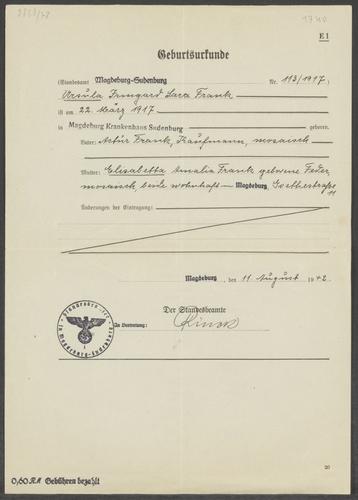 1740
E 1
Geburtsurkunde
(Standesamt Magdeburg-Sudenburg Nr. 113/1917)
Ursula Irmgard Sara Frank
ist am 22. März 1917
in Magdeburg Krankenhaus Sudenburg geboren.
Vater: Artur Frank, Kaufmann, mosaisch
Mutter: Elisabetta Amalia Frank geborene Feder,
mosaisch, beide wohnhaft — Magdeburg, Goethestraße
11
Änderungen der Eintragung:
Magdeburg, den 11. August 1942.
Der Standesbeamte
In Vertretung:
0,60 RM Gebühren bezahlt
20